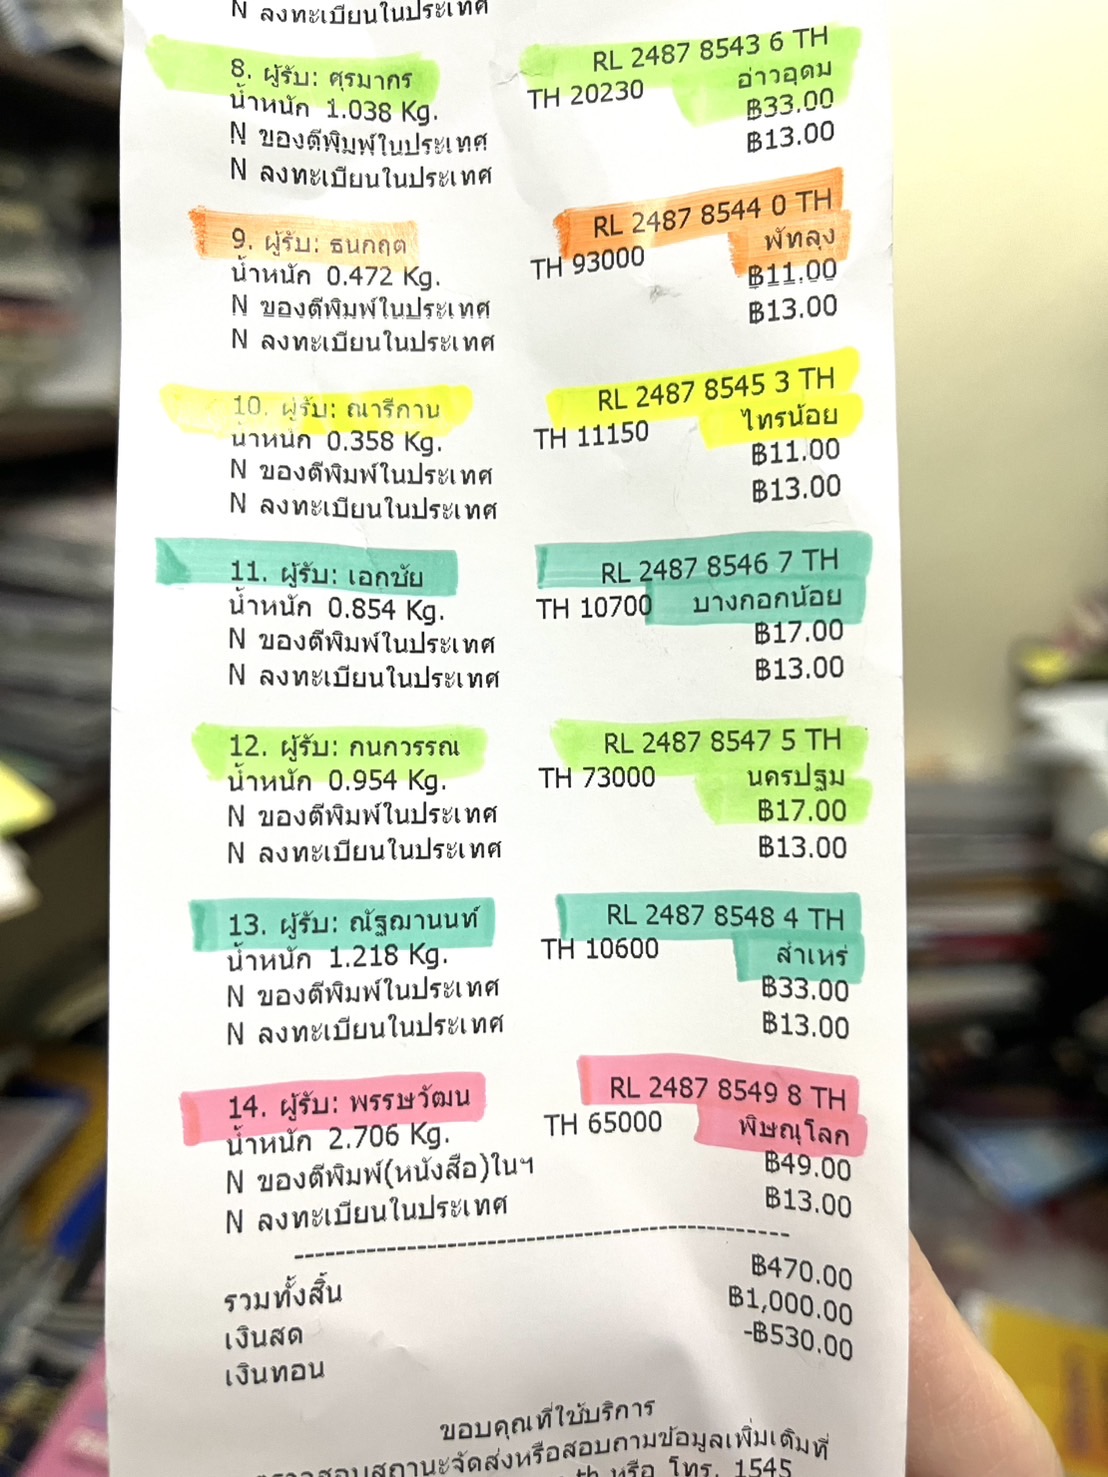 N ลงทะเบียนในประเทศ
8. ผู้รับ: ศุรมากร RL 2487 8543 6 TH
น้ำหนัก 1.038 Kg. TH 20230 อ่าวอุดม
N ของตีพิมพ์ในประเทศ ฿33.00
N ลงทะเบียนในประเทศ ฿13.00
9. ผู้รับ: ธนกฤต RL 2487 8544 0 TH
น้ำหนัก 0.472 Kg. TH 93000 พัทลุง
N ของตีพิมพ์ในประเทศ ฿11.00
N ลงทะเบียนในประเทศ ฿13.00
10. ผู้รับ: ณารีกาน RL 2487 8545 3 TH
น้ำหนัก 0.358 Kg. TH 11150 ไทรน้อย
N ของตีพิมพ์ในประเทศ ฿11.00
N ลงทะเบียนในประเทศ ฿13.00
11. ผู้รับ: เอกชัย RL 2487 8546 7 TH
น้ำหนัก 0.854 Kg. TH 10700 บางกอกน้อย
N ของตีพิมพ์ในประเทศ ฿17.00
N ลงทะเบียนในประเทศ ฿13.00
12. ผู้รับ: กนกวรรณ RL 2487 8547 5 TH
น้ำหนัก 0.954 Kg. TH 73000 นครปฐม
N ของตีพิมพ์ในประเทศ ฿17.00
N ลงทะเบียนในประเทศ ฿13.00
13. ผู้รับ: ณัฐฌานนท์ RL 2487 8548 4 TH
น้ำหนัก 1.218 Kg. TH 10600 สำเหร่
N ของตีพิมพ์ในประเทศ ฿33.00
N ลงทะเบียนในประเทศ ฿13.00
14. ผู้รับ: พรรษวัฒน RL 2487 8549 8 TH
น้ำหนัก 2.706 Kg. TH 65000 พิษณุโลก
N ของตีพิมพ์(หนังสือ)ในฯ ฿49.00
N ลงทะเบียนในประเทศ ฿13.00
รวมทั้งสิ้น ฿470.00
เงินสด ฿1,000.00
เงินทอน -฿530.00
ขอบคุณที่ใช้บริการ
ตรวจสอบสถานะจัดส่งหรือสอบถามข้อมูลเพิ่มเติมที่
th หรือ โทร. 1545